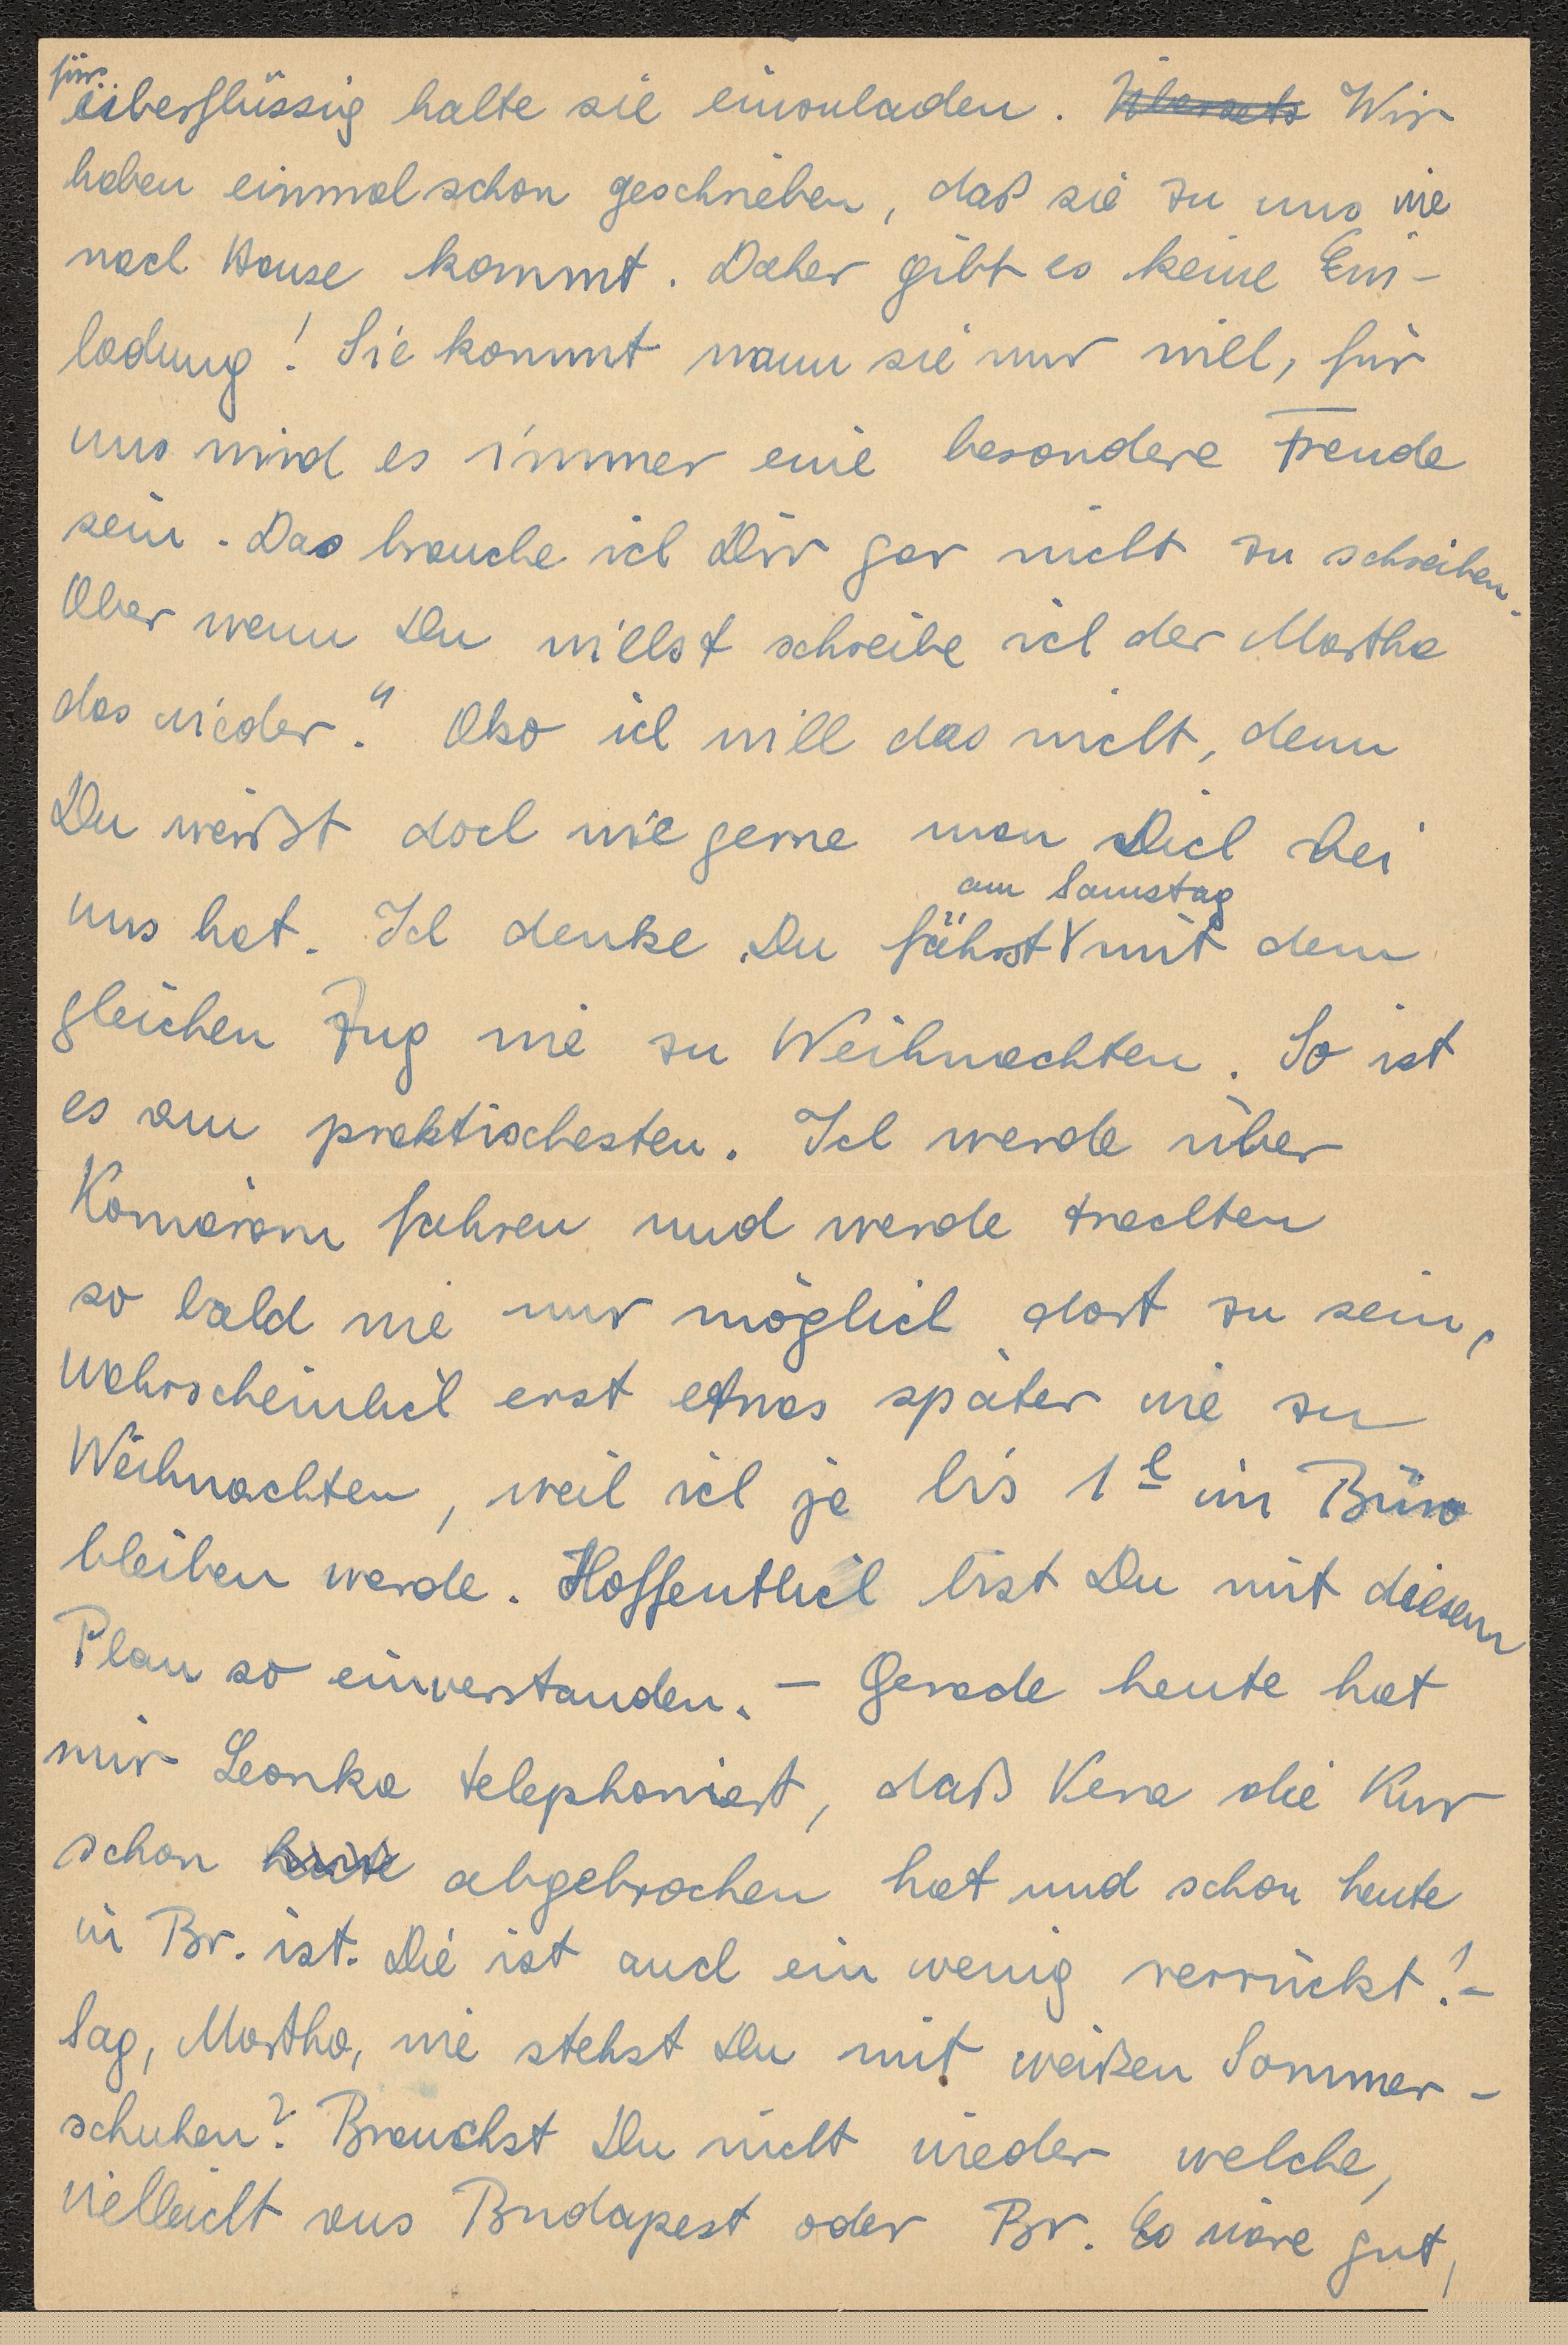 für
überflüssig halte sie einzuladen. Wir
haben einmal schon geschrieben, daß sie zu uns wie
nach Hause kommt. Daher gibt es keine Ein-
ladung! Sie kommt wann sie nur will, für
uns wird es immer eine besondere Freude
sein. Das brauche ich Dir gar nicht zu schreiben.
Aber wenn Du willst schreibe ich der Martha
das wieder." Also ich will das nicht, denn
Du weißt doch wie gerne man Dich bei
am Samstag
uns hat. Ich denke Du fährst mit dem
gleichen Zug wie zu Weihnachten. So ist
es am praktischesten. Ich werde über
Komárom fahren und werde trachten
so bald wie nur möglich dort zu sein,
wahrscheinlich erst etwas später wie zu
Weihnachten, weil ich ja bis 1h im Büro
bleiben werde. Hoffentlich bist Du mit diesem
Plan so einverstanden. – Gerade heute hat
mir Leonka telephoniert, daß Vera die Kur
schon heute abgebrochen hat und schon heute
in Br. ist. Die ist auch ein wenig verrückt! –
Sag, Martha, wie stehst Du mit weißen Sommer-
schuhen? Brauchst Du nicht wieder welche,
vielleicht aus Budapest oder Br. Es wäre gut,